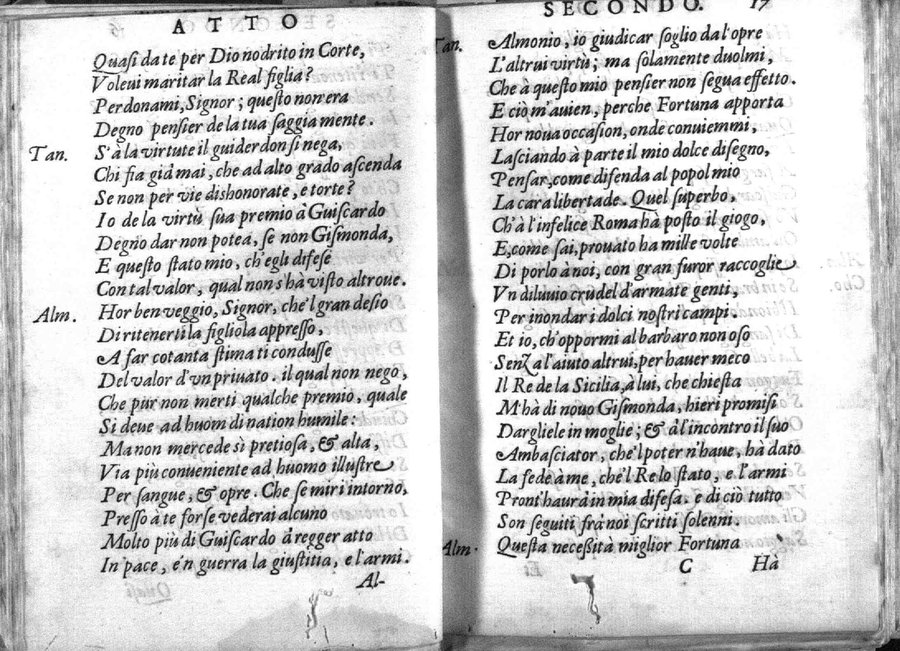 ATTO
Quasi da te per Dio nodrito in Corte,
Voleui maritar la Real figlia?
Perdonami, Signor; questo non era
Degno pensier de la tua saggia mente.
Tan. S'à la virtute il guiderdon si nega,
Chi fia già mai, che ad alto grado ascenda
Se non per vie dishonorate, e torte?
Io de la virtù sua premio à Guiscardo
Degno dar non potea, se non Gismonda,
E questo stato mio, ch'egli difese
Con tal valor, qual non s'hà visto altroue.
Alm. Hor ben veggio, Signor, che'l gran desio
Di ritenerti la figliola appresso,
A far cotanta stima ti condusse
Del valor d'vn priuato. il qual non nego,
Che pur non merti qualche premio, quale
Si deue ad huom di nation humile:
Ma non mercede sì pretiosa, & alta,
Via più conueniente ad huomo illustre
Per sangue, & opre. Che se miri intorno,
Presso à te forse vederai alcuno
Molto più di Guiscardo à regger atto
In pace, e'n guerra la giustitia, e l'armi.
Al-
SECONDO. 17
Tan. Almonio, io giudicar soglio da l'opre
L'altrui virtù; ma solamente duolmi,
Che à questo mio pensier non segua effetto.
E ciò m'auien, perche Fortuna apporta
Hor noua occasion, onde conuiemmi,
Lasciando à parte il mio dolce disegno,
Pensar, come difenda al popol mio
La cara libertade. Quel superbo,
Ch'à l'infelice Roma hà posto il giogo,
E, come sai, prouato ha mille volte
Di porlo à noi, con gran furor raccoglie
Vn diluuio crudel d'armate genti,
Per inondar i dolci nostri campi.
Et io, ch'oppormi al barbaro non oso
Senza l'aiuto altrui, per hauer meco
Il Re de la Sicilia, à lui, che chiesta
M'hà di nouo Gismonda, hieri promisi
Dargliele in moglie; & à l'incontro il suo
Ambasciator, che'l poter n'haue, hà dato
La fede à me, che'l Re lo stato, e l'armi
Pront'haurà in mia difesa. e di ciò tutto
Son seguiti frà noi scritti solenni.
Alm. Questa necessità miglior Fortuna
C Hà